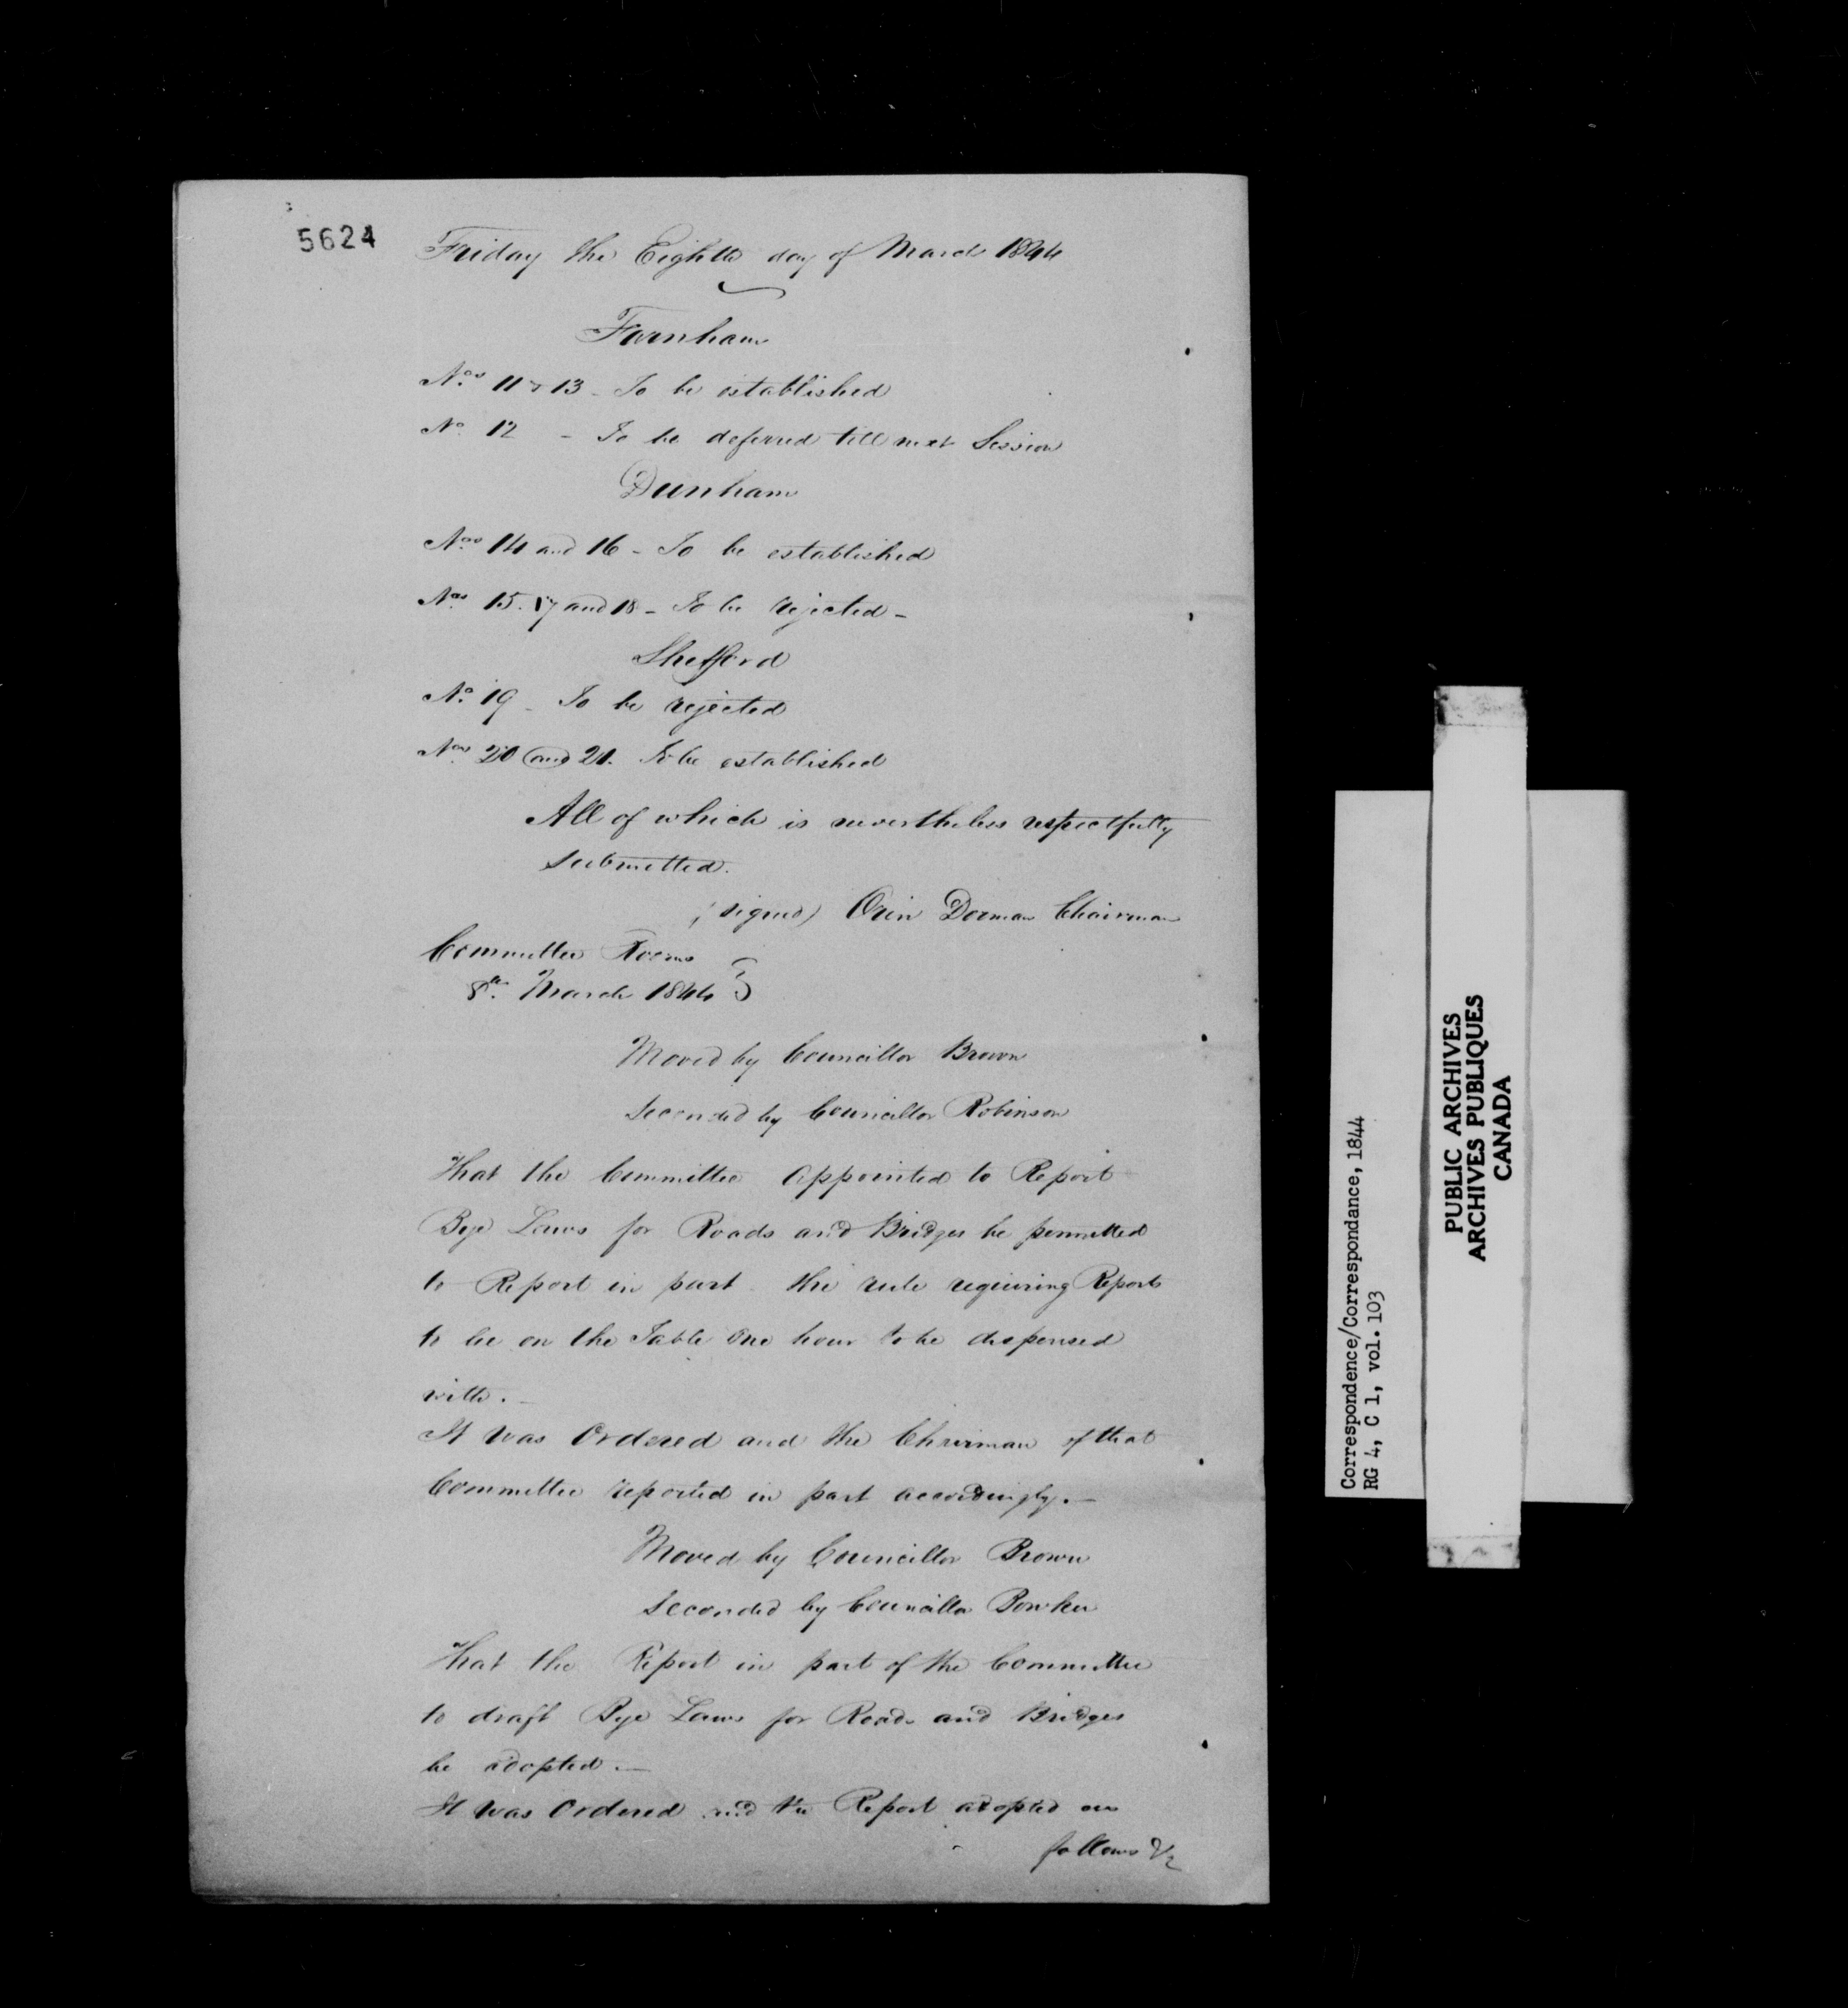 5624
Friday the Eighth day of March 1844
Farnham
Nos 11 & 13 - To be established
No 12 - To be deferred till next Session
Dunham
Nos 14 and 16 - To be established
Nos 15. 17 and 18 - To be rejected -
Shefford
No 19 - To be rejected
Nos 20 and 21. To be established
All of which is nevertheless respectfully
submitted.
(signed) Orin Dorman Chairman
Committee Rooms
8th March 1844
Moved by Councillor Brown
Seconded by Councillor Robinson
That the Committee appointed to Report
Bye Laws for Roads and Bridges be permitted
to Report in part the rule requiring Reports
to lie on the Table One hour to be dispensed
with. -
It was Ordered and the Chairman of that
Committee reported in part accordingly. -
Moved by Councillor Brown
Seconded by Councillor Bowker
That the Report in part of the Committee
to draft Bye Laws for Roads and Bridges
be adopted. -
It was Ordered and the Report adopted as
follows Viz
Correspondence/Correspondance, 1844
RG 4, C 1, vol. 103
PUBLIC ARCHIVES
ARCHIVES PUBLIQUES
CANADA